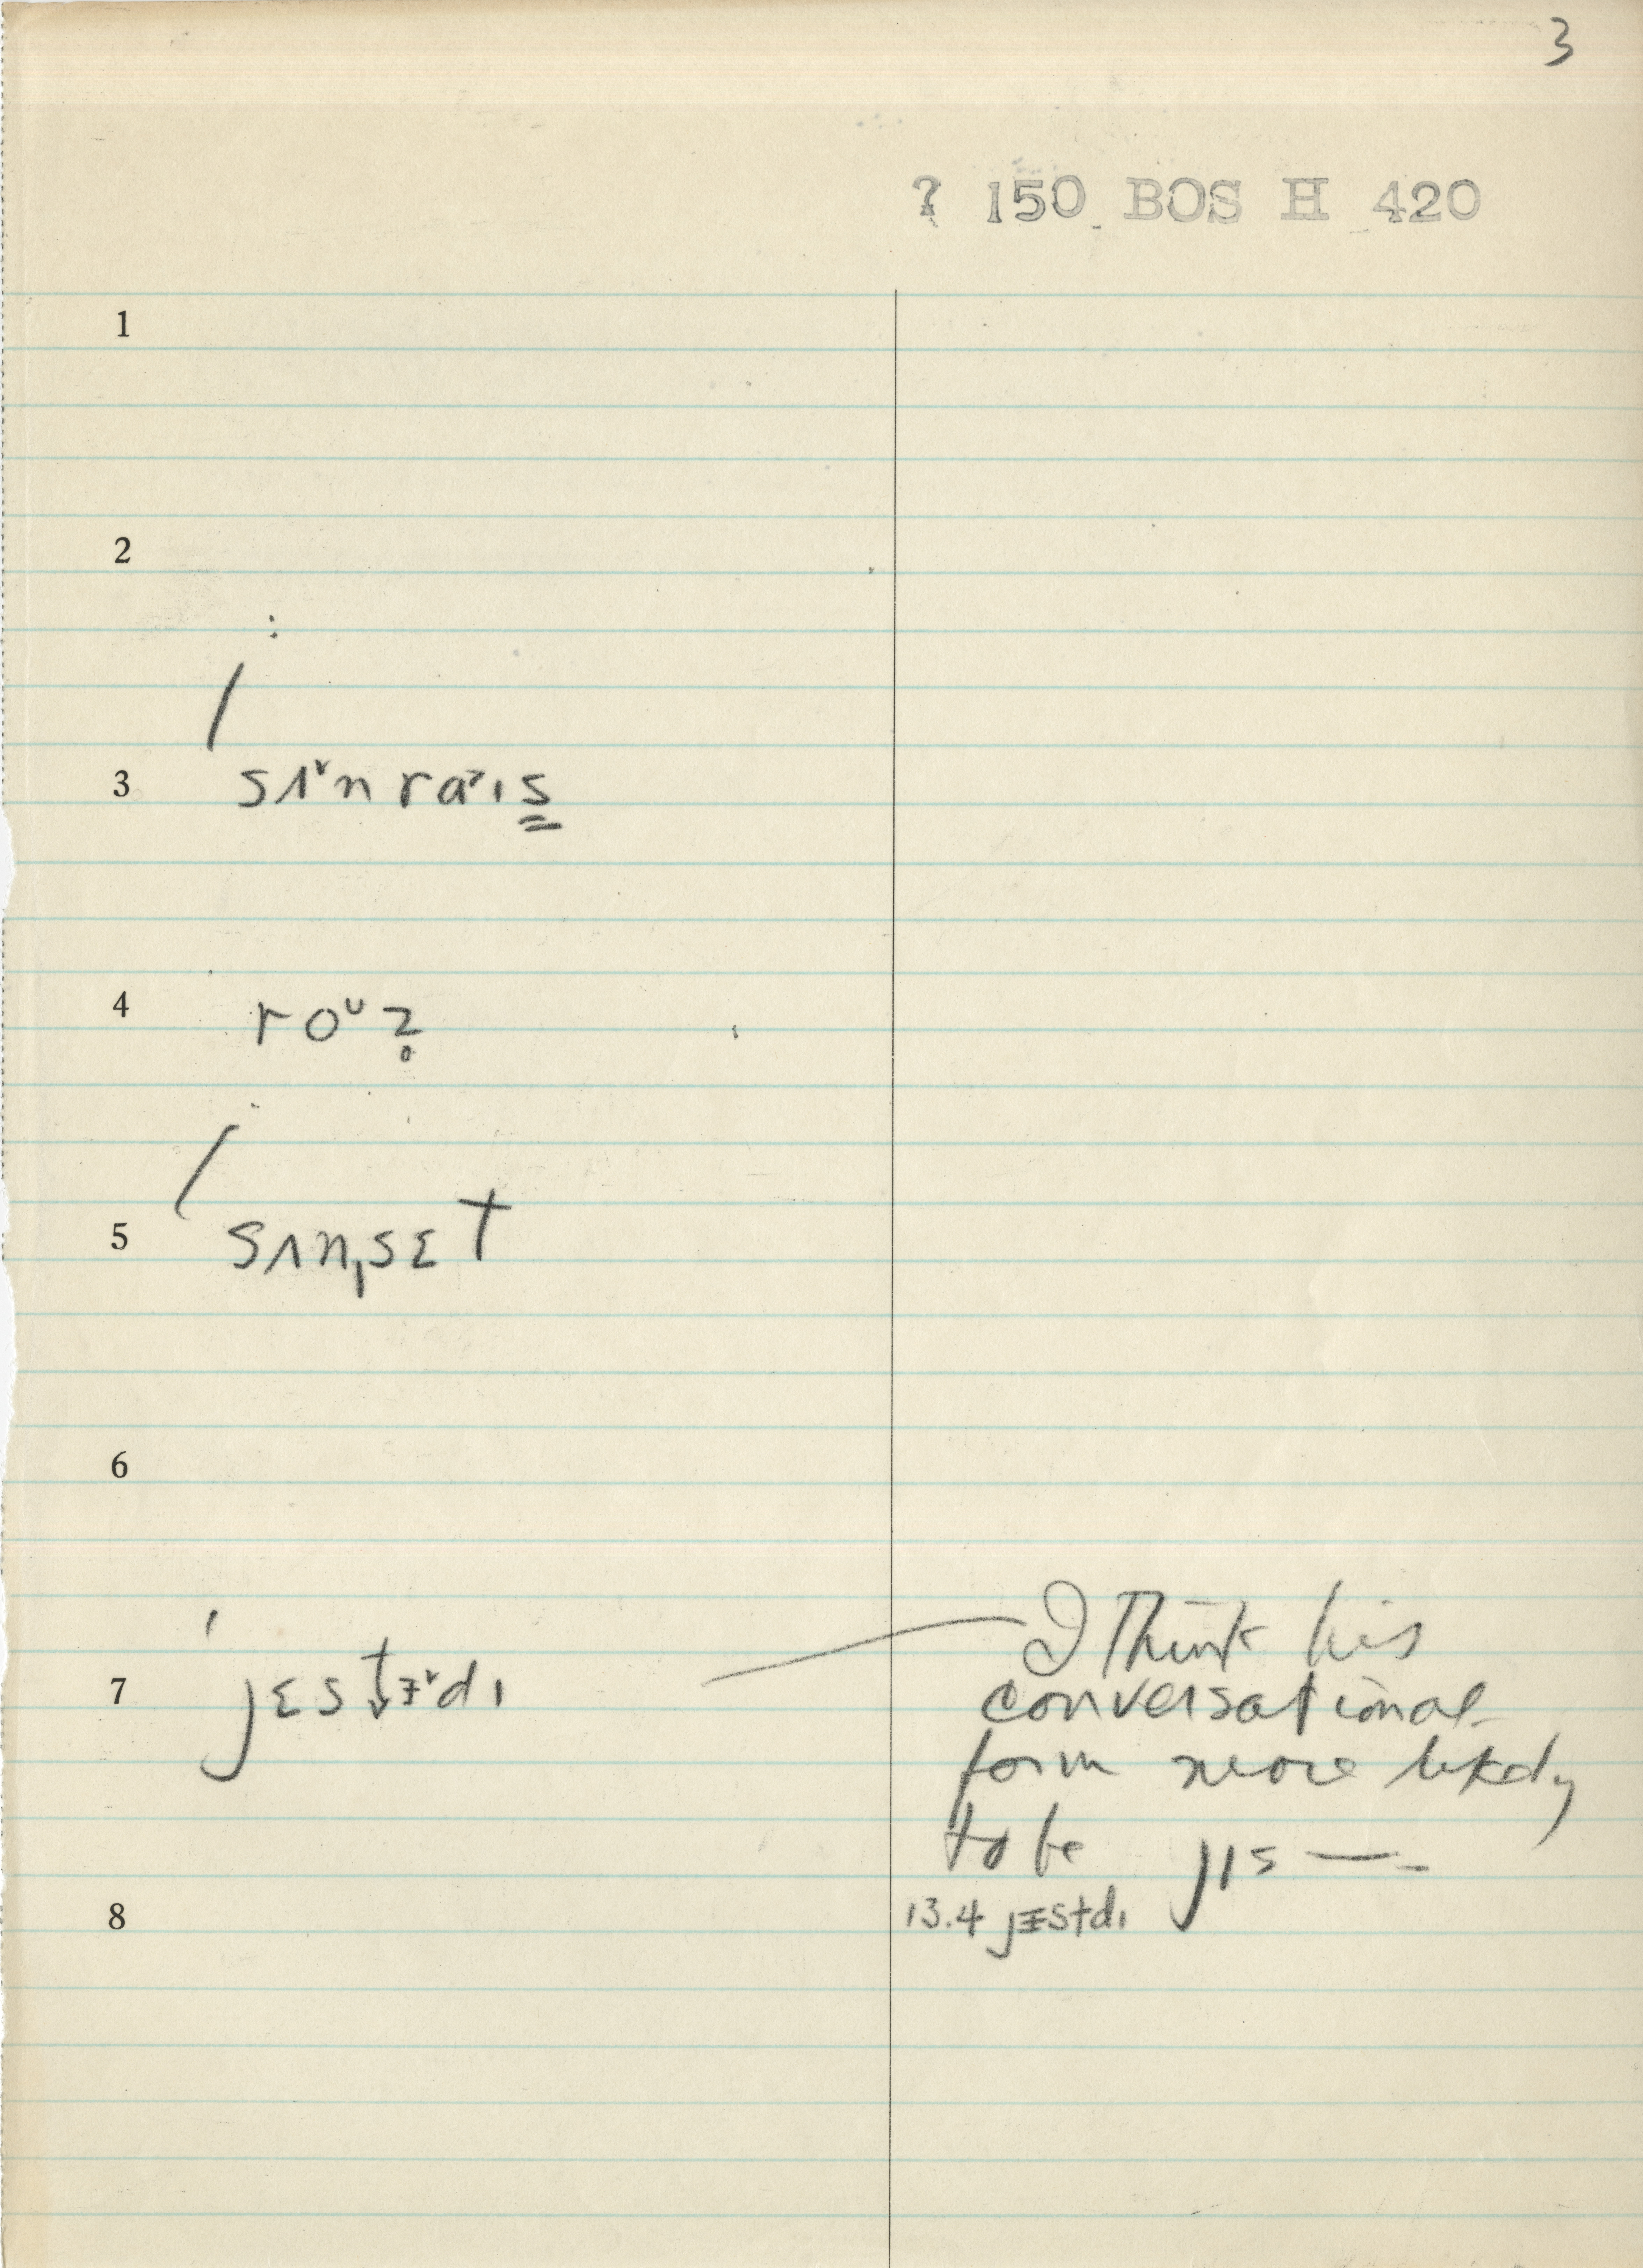 3
? 150 BOS H 420
1
2
3 sʌ˅n ra˃ɪs̳
4 roᴜz̥
5 sʌn͵sɛt
6
7 ˈjɛst↓ᵻ˅dɪ
I think his
conversational
form more likely
to be jɪs —
8 13.4 jᵻstdɪ